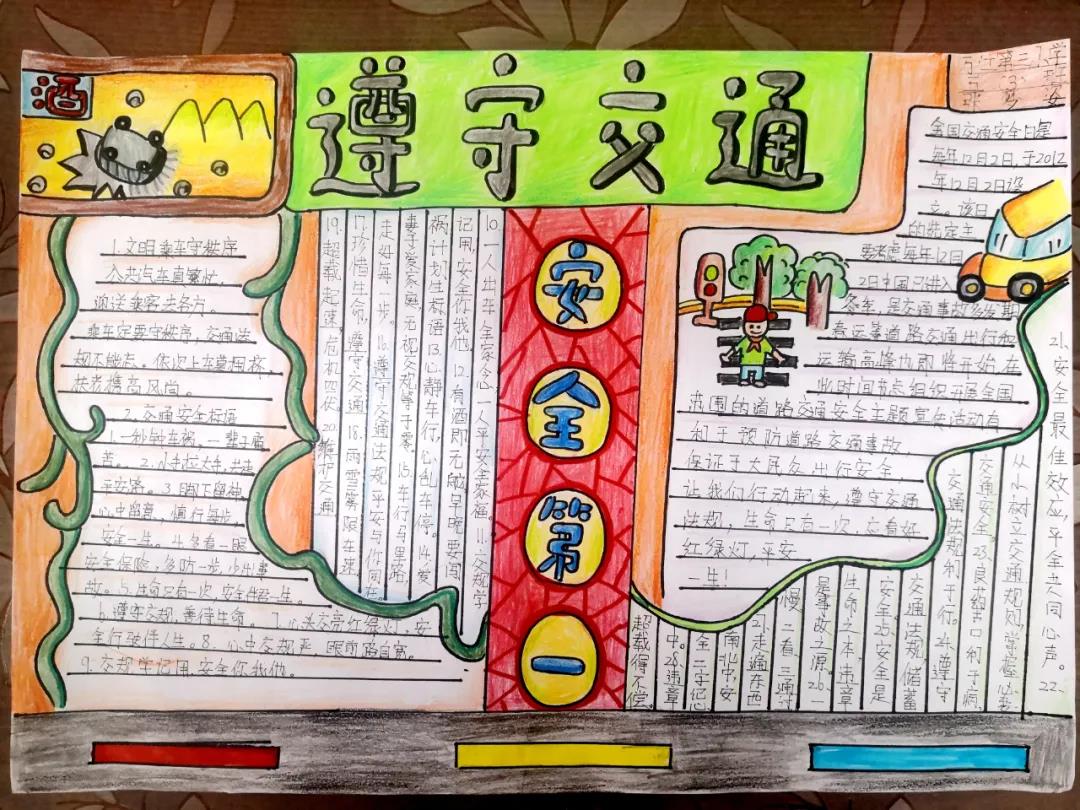 酒
遵守交通
1.文明乘车守秩序
公共汽车真繁忙，
迎送乘客去各方。
乘车定要守秩序，交通法
规不能忘。依次上车莫拥挤，
扶老携幼高风尚。
2.交通安全标语
1.一秒钟车祸，一辈子痛
苦。2.小手拉大手，共建
平安路。3.脚下留神
心中留意，慎行每步，
安全一生。4.多看一眼
安全保险；多防一步，少出事
故。5.生命只有一次，安全伴君一生。
6.遵守交规，善待生命。7.心头交高红绿灯，安
全行驶伴人生。8.心中交规严，眼前路自宽。
9.交规学记用，安全你我他。
10.一人出车全家念，一人平安全家福。11.交规学
记用，安全你我他。12.有酒即无
祸计划生标语13.心静车行，心乱车停。14.爱
妻子爱家庭无视交规等于零。15.车行万里路，
走好每一步。16.遵守交通法规平安与你同在
17.珍惜生命，遵守交通。18.雨雪雾限车速
19.超载超速，危机四伏。20.维护交通
安全第一
市第三小学
全国交通安全日是
每年12月2日，于2012
年12月2日设
立。该日
的特定主
要考虑每年12月
2日中国已进入
冬季，是交通事故多发期
春运等道路交通出行和
运输高峰也即将开始，在
此时间节点组织开展全国
范围的道路交通安全主题宣传活动有
利于预防道路交通事故，
保证广大民众出行安全，
让我们行动起来，遵守交通
法规，生命只有一次，应看好
红绿灯，平安
一生！
21.安全最佳效应，平安共同心声。22.
从小树立交通规则，掌握
交通安全。23.良药苦口利于病，
交通法规利于行。24.遵守
交通法规，储蓄
安全。25.安全是
生命之本，违章
是事故之源。26.一
慢二看三通过
27.走遍东西
南北中，安
全二字记
心中。28.违章
超载得不偿